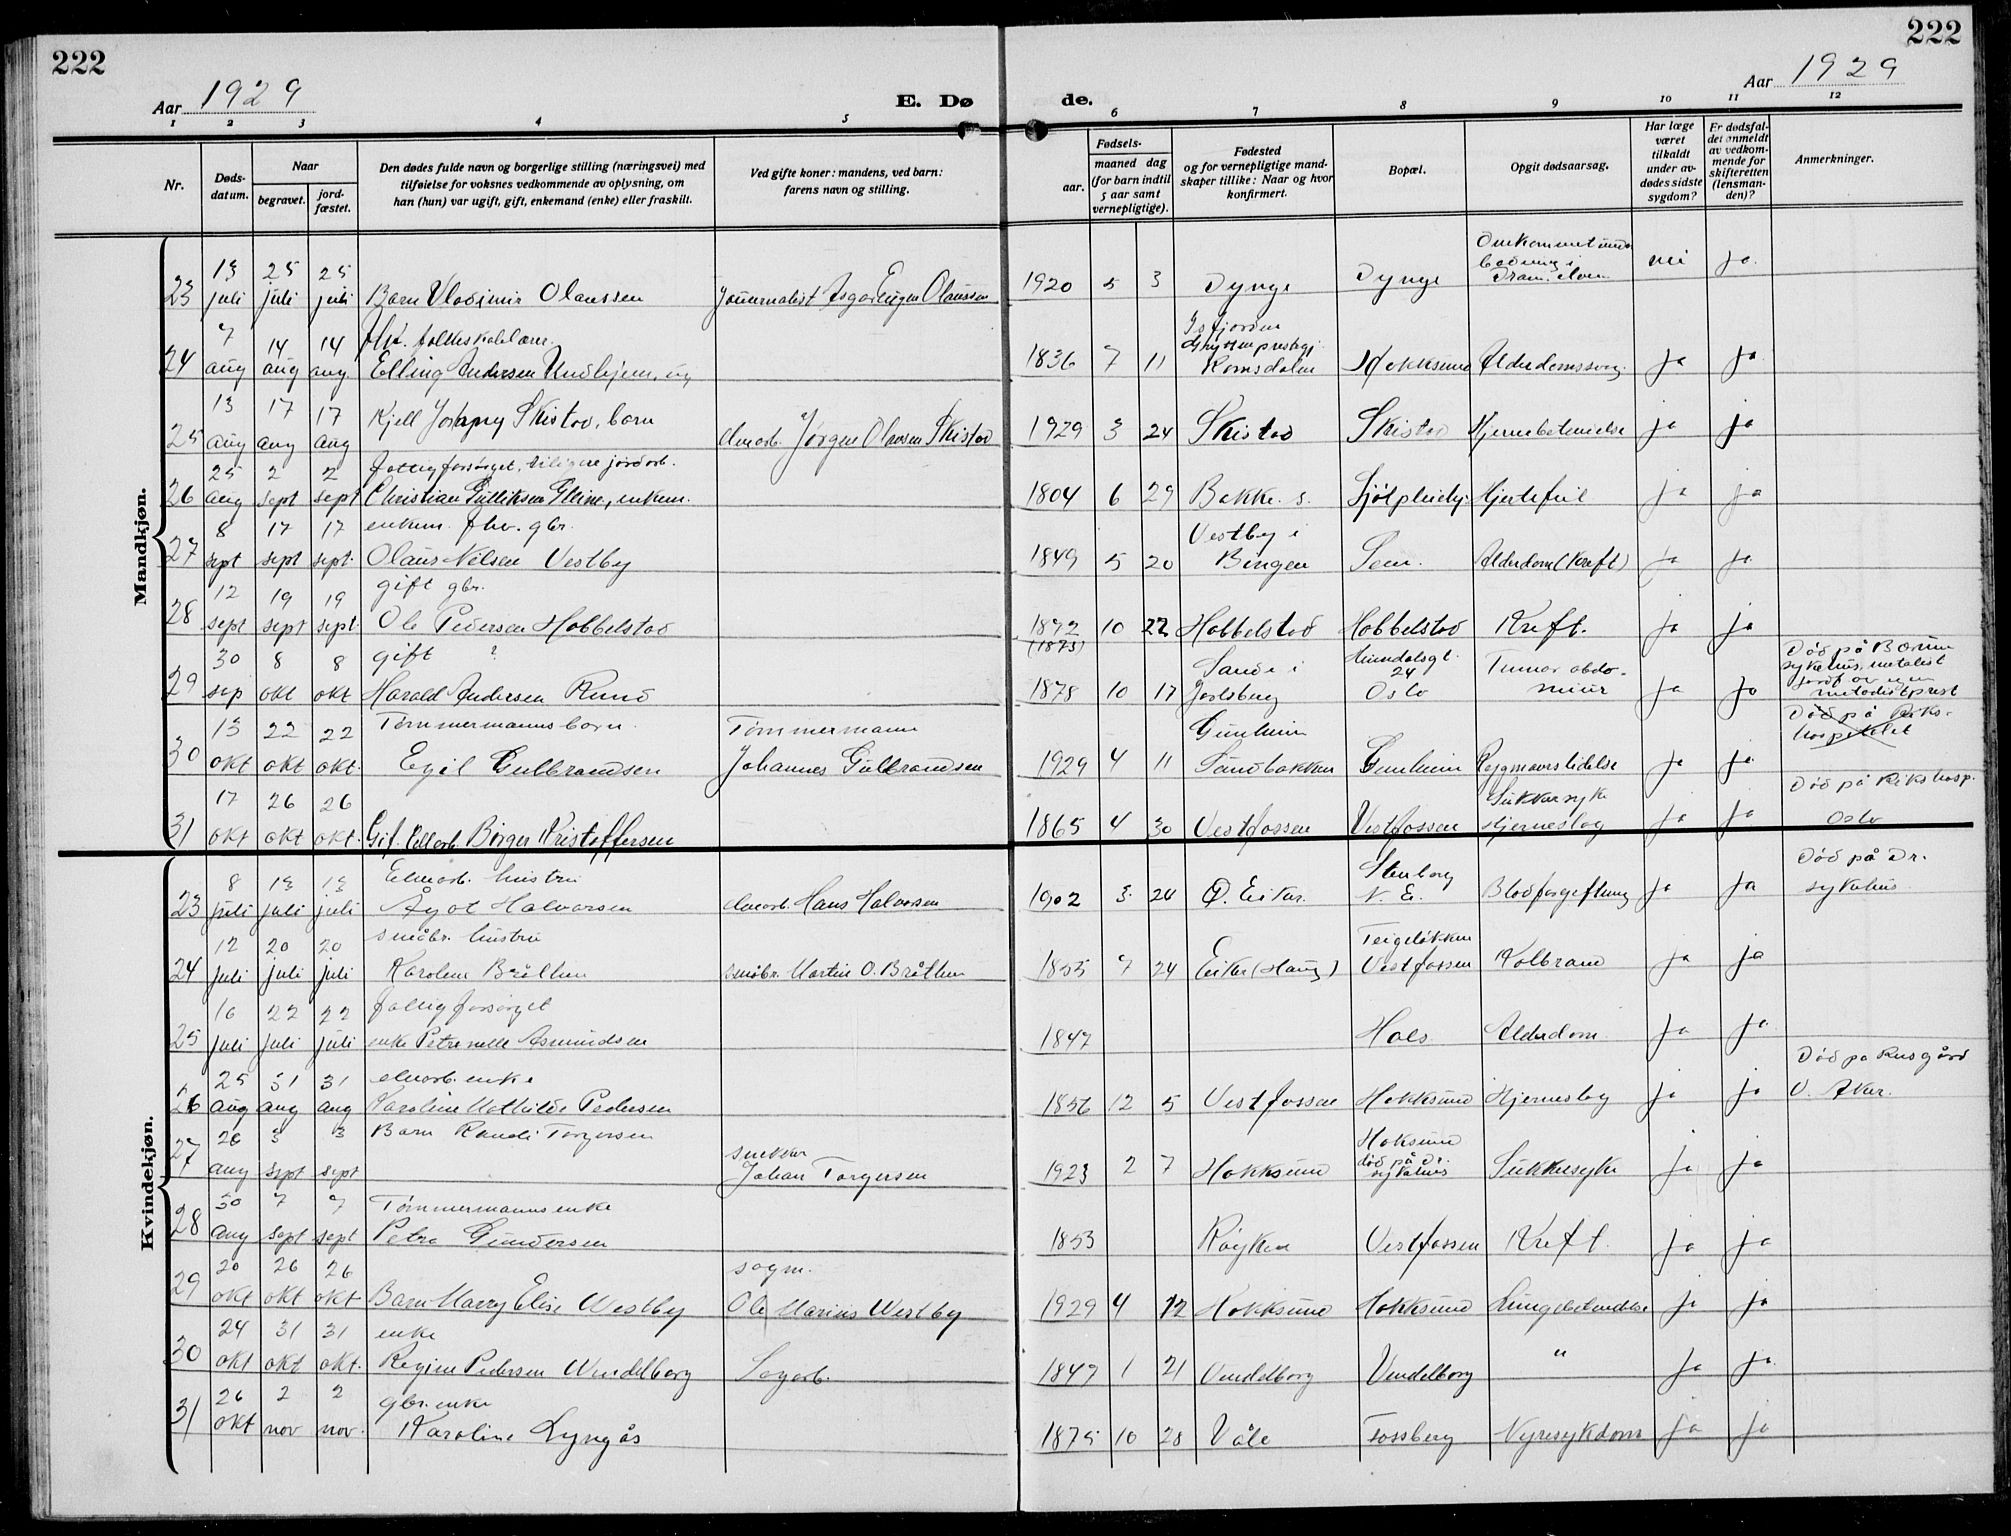 222
222
Aar 1929
E. Dø
de.
Aar 1929
1 2 3 4 5 6 7 8 9 10 11 12
Nr.
Dødsdatum.
Naar
begravet.
jordfæstet.
Den dødes fulde navn og borgerlige stilling (næringsvei) med
tilføielse for voksnes vedkommende av oplysning, om
han (hun) var ugift, gift, enkemand (enke) eller fraskilt.
Ved gifte koner: mandens, ved barn:
farens navn og stilling.
Fødsels-
aar.
maaned dag
(for barn indtil
5 aar samt
vernepligtige).
Fødested
og for vernepligtige mand-
skaper tillike: Naar og hvor
konfirmert.
Bopæl.
Opgit dødsaarsag.
Har læge
været
tilkaldt
under av-
dødes sidste
sygdom?
Er dødsfal-
det anmeldt
av vedkom-
mende for
skifteretten
(lensman-
den)?
Anmerkninger.
Mandkjøn.
23 13 juli 25 juli 25 juli Barn Vladimir Olaussen Journalist Asgar Eugen Olaussen 1920 5 3 Dynge Dynge Omkommet under badning i Dram.elven nei ja.
24 7 aug 14 aug 14 aug. fhv. folkeskolelærer. Elling Andersen Undhjem, ug 1836 7 11 Isfjorden Romsdalen Hokksund Alderdomssvag. ja ja
25 13 aug 17 aug 17 aug Kjell Johnny Skistad, barn elvearb. Jørgen Olausen Skistad 1929 3 24 Skistad Skistad Hjernebetendelse ja ja
26 25 aug 2 sept 2 sept fattigforsørget, tidligere jordarb. Christian Gulliksen enkem. 6 29 Bakke. s. Hjertefeil ja ja
27 8 sept 17 sept 17 sept. enkem. fhv. gbr. Olaus Nilsen Vestby 1849 5 20 Vestby i Bingen Sem. Alderdom (Kreft) ja ja
28 12 sept 19 sept 19 sept. gift gbr. Ole Pedersen Hobbelstad 1872 (1873) 10 22 Hobbelstad Hobbelstad Kreft. ja ja
29 30 sep 8 okt 8 okt gift ? Harald Andersen Rund 1878 10 17 Sande i Jarlsberg 24 Oslo Tumor abdominis ja ja Død på Bærum sykehus, metodist jordf av egen metodistprest
30 13 okt 22 okt 22 okt. Tømmermanns barn. Egil Gulbrandsen Tømmermann Johannes Gulbrandsen 1929 4 11 Gunheim Sandbakken Gunheim Rygmarvslidelse ja ja Død på Rikshospitalet
31 17 okt 26 okt 26 okt. Gift. Cellarb. Birger Kristoffersen 1865 4 30 Vestfossen Vestfossen Sukkersyke Hjerneslag ja ja Død på Rikshosp. Oslo
Kvindekjøn.
23 8 juli 13 juli 13 juli Elvearb. hustru Ågot Halvorsen elvearb. Hans Halvorsen 1902 3. 24 Ø. Eiker. Stenberg N. E. Blodforgiftning ja ja Død på Dr. sykehus
24 12 juli 20 juli 20 juli småbr. hustru Karoline Bråthen småbr. Martin O. Bråthen 1855 7 24 Eiker (Haug) Teigeløkken Vestfossen Kolbrand ja ja
25 16 juli 22 juli 22 juli fattigforsørget enke Petrenelle Asmundsen 1847 Hals. Alderdom ja ja
26 25 aug 31 aug 31 aug elvearb. enke Karoline Mathilde Pedersen 1856 12 5 Vestfossen Hokksund Hjerneslag ja ja Død på Rusgård V. Aker.
27 26 aug 3 sept 3 sept Barn Randi Torgersen snekker Johan Torgersen 1923 2 7 Hokksund Hoksund død på Dr. sykehus Sukkersyke ja ja
28 30 aug 7 sept 7 sept Tømmermanns enke Petra Gundersen 1853 Røyken Vestfossen Kreft. ja ja
29 20 okt 26 okt 26 okt Barn Marry Elise Westby sagm. Ole Marius Westby 1929 4 12 Hokksund Hokksund Lungebetendelse ja ja
30 24 okt 31 okt 31 okt. enke Regine Pedersen Vendelborg Sagarb. 1849 1 21 Vendelborg Vendelborg " ja ja
31 26 okt 2 nov 2 nov. gbr. enke Karoline Lyngås 1875 10 28 Våle Fossberg Nyresykdom ja ja